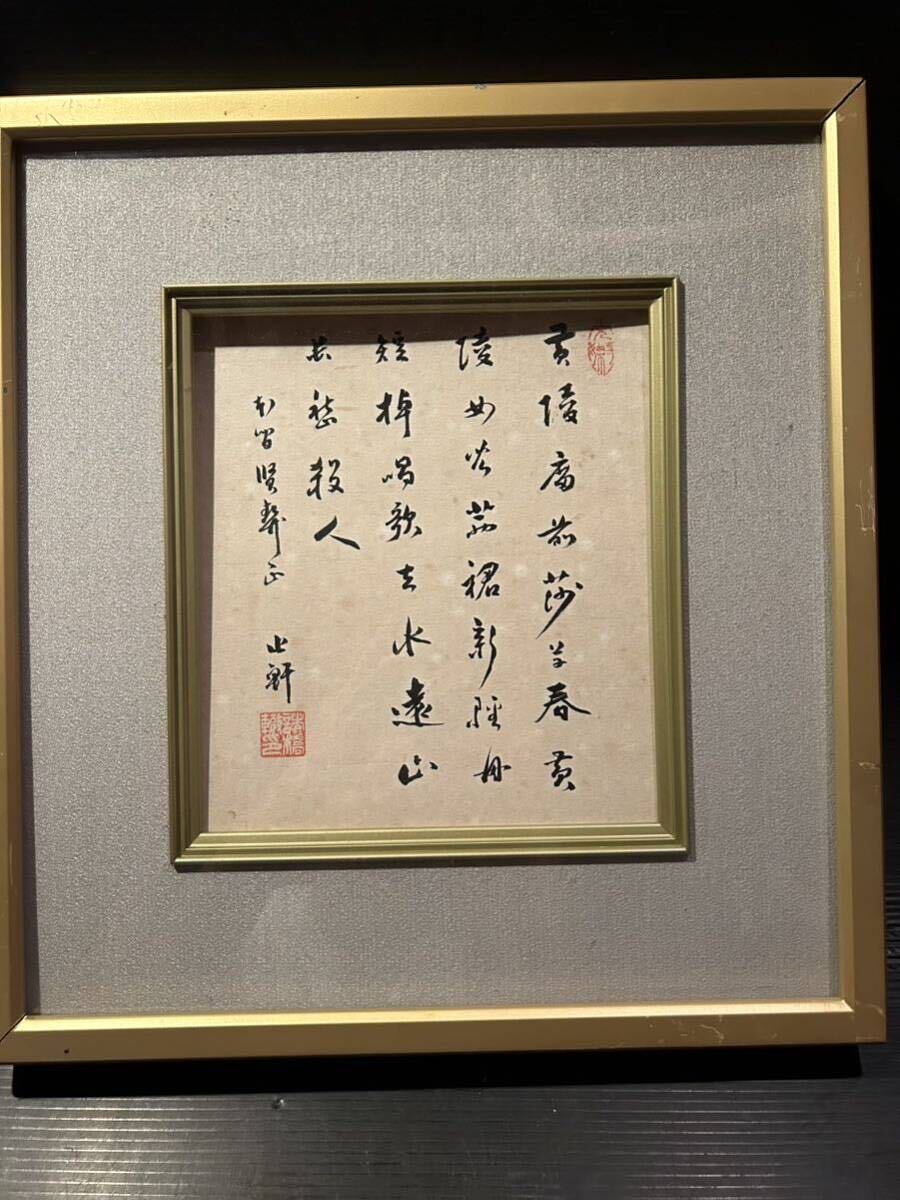 黃陵廟前莎草春黃
陵女兒茜裙新輕舟
短棹唱歌去水遠山
長愁殺人
賢契正 止軒